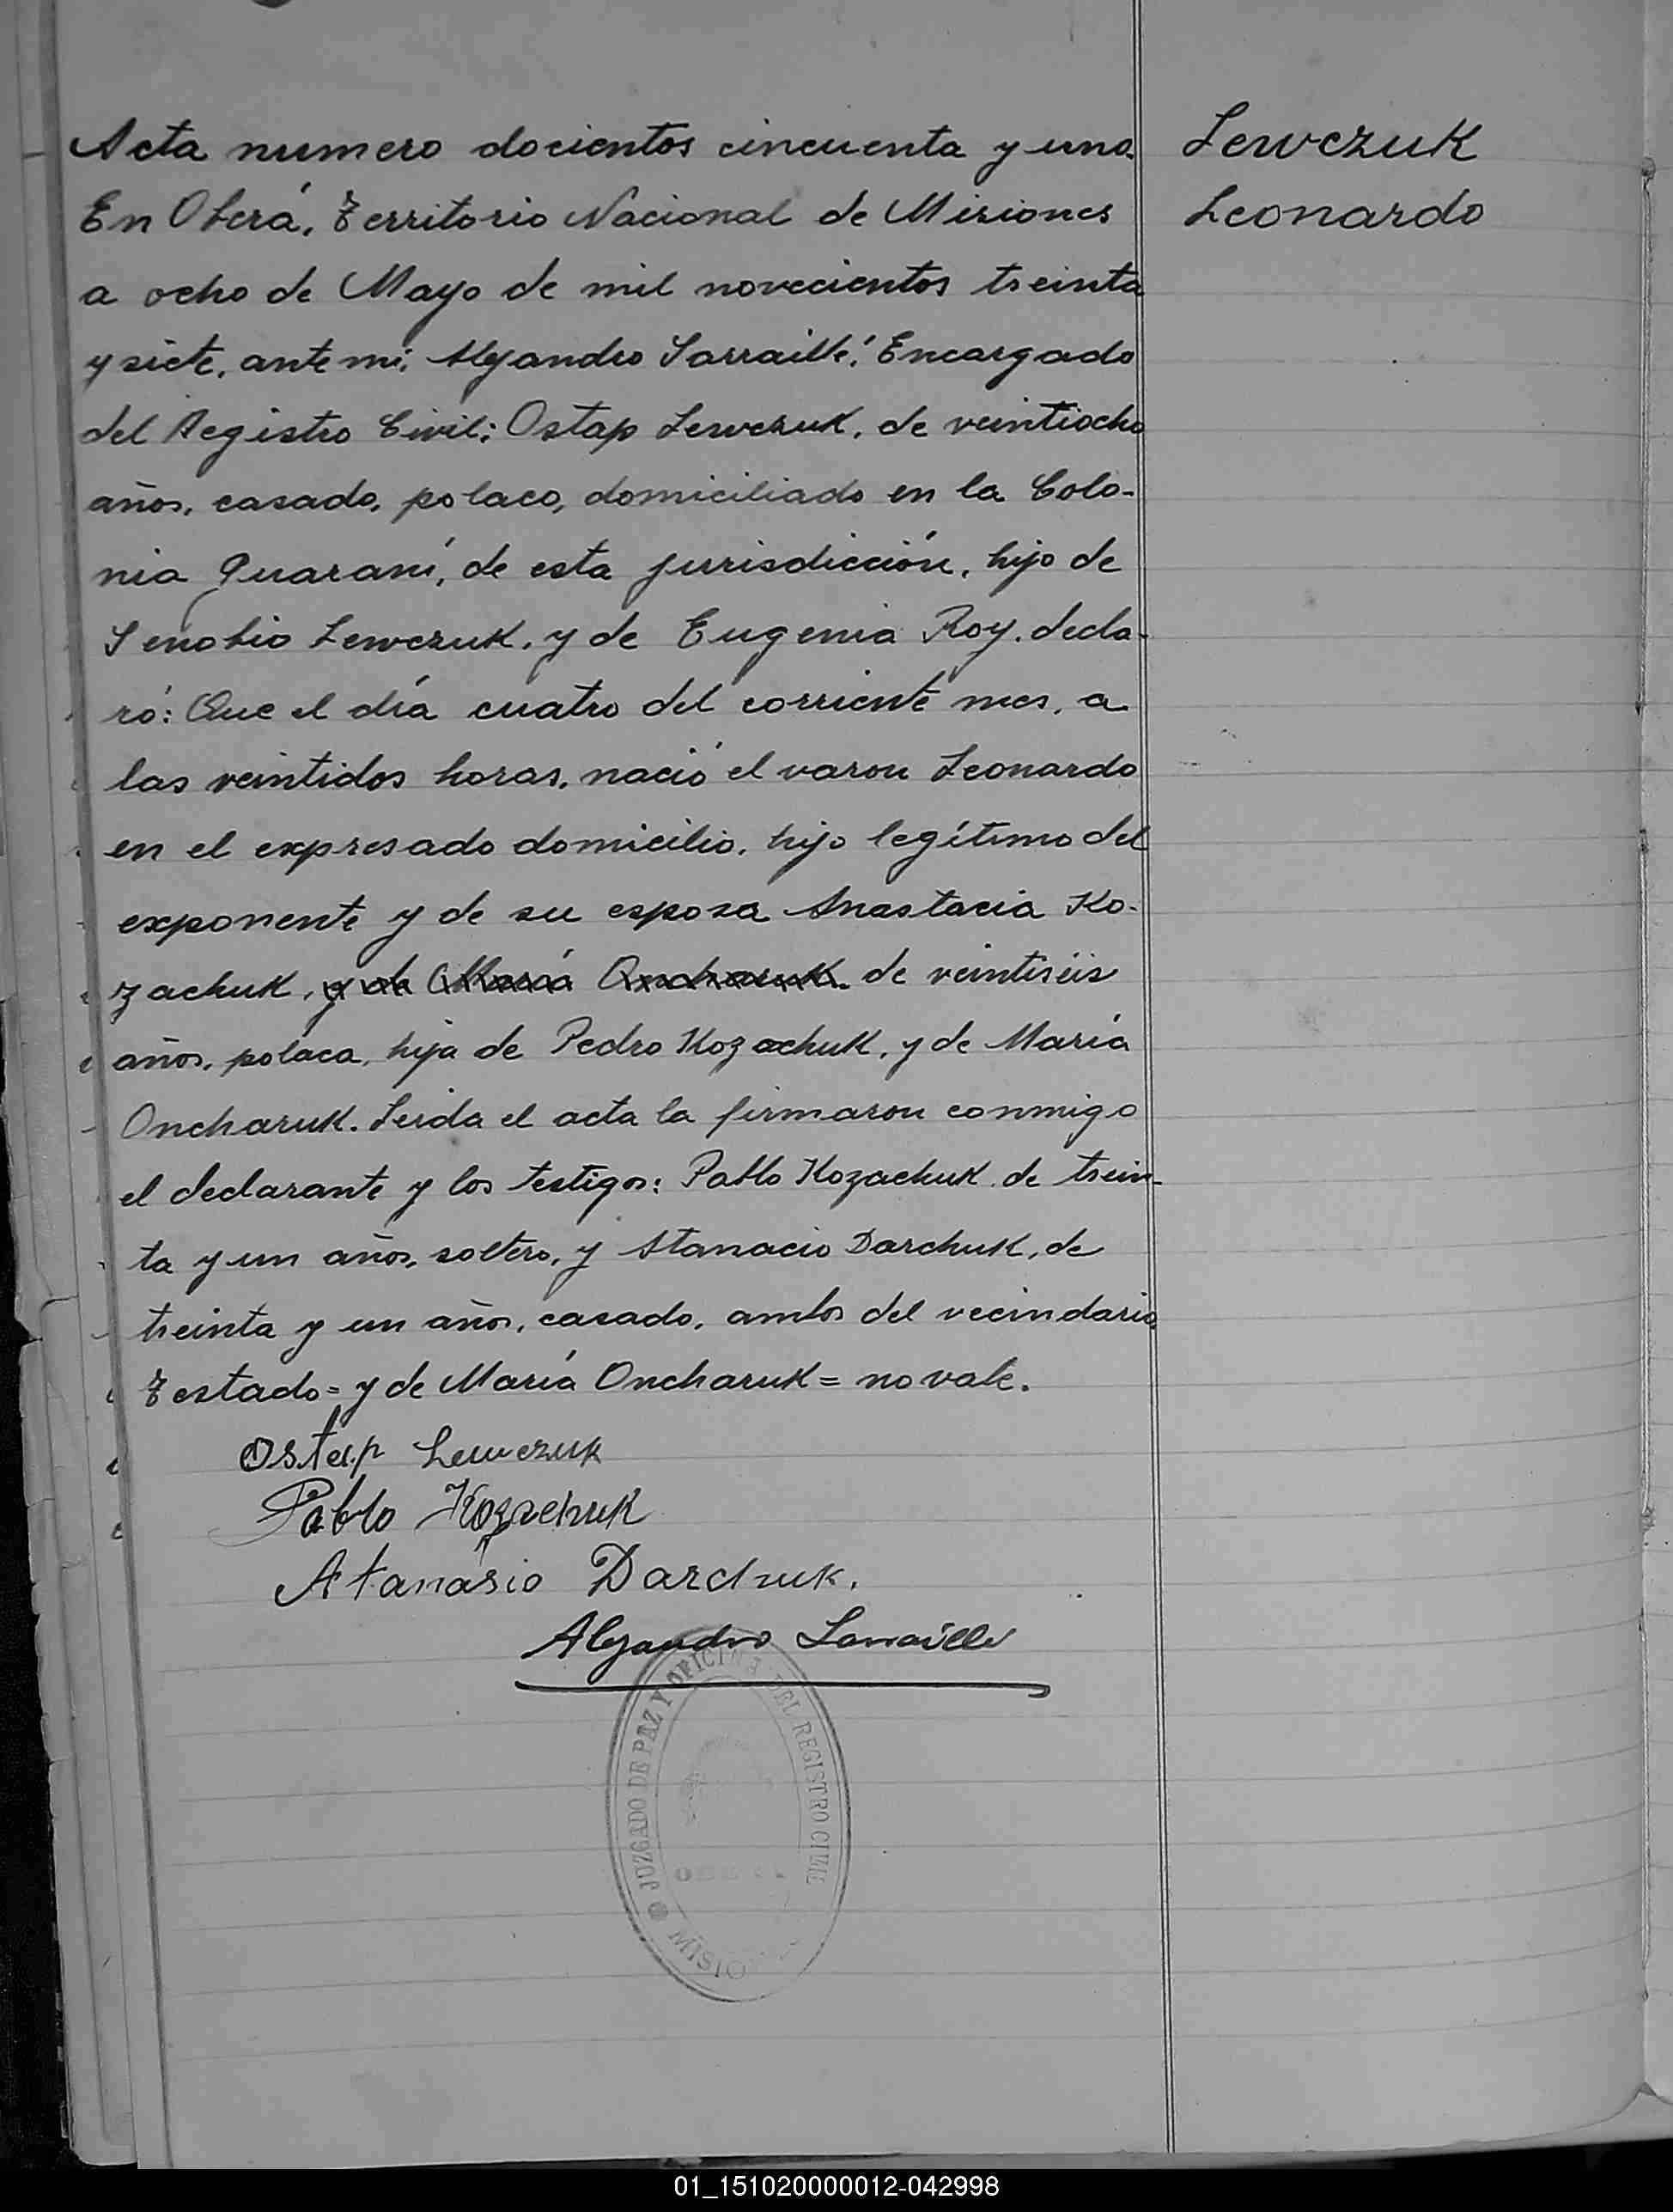 Acta numero docientos cincuenta y uno.
En Oberá, Territorio Nacional de Misiones
a ocho de Mayo de mil novecientos treinta
y siete, ante mi: Alejandro Sarraillé, Encargado
del Registro Civil: Ostap Lewczuk, de veintiocho
años, casado, polaco, domiciliado en la Colo-
nia Guaraní, de esta jurisdicción, hijo de
Senobio Lewczuk, y de Eugenia Roy, decla-
ró: Que el día cuatro del corriente mes, a
las veintidos horas, nació el varon Leonardo
en el expresado domicilio, hijo legítimo del
exponente y de su esposa Anastacia Ko-
zachuk, y de María Oncharuk. de veintiséis
años, polaca, hija de Pedro Kozachuk, y de María
Oncharuk. Leida el acta la firmaron conmigo
el declarante y los testigos: Pablo Kozachuk de trein-
ta y un años, soltero, y Atanacio Darchuk, de
treinta y un años, casado, ambos del vecindario.
Testado = y de María Oncharuk = no vale.
Ostap Lewczuk
Pablo Kozachuk
Atanasio Darchuk.
Alejandro Sarraillé
JUZGADO DE PAZ Y OFICINA DEL REGISTRO CIVIL
Lewczuk
Leonardo
01_151020000012-042998